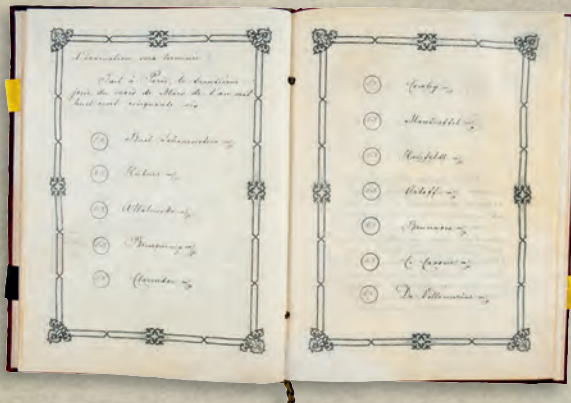 l'évacuation sera terminée
Fait à Paris, le trentième
jour du mois de Mars de l'an mil
huit cent cinquante six
Buol Schauenstein
Hübner
A Walewski
Bourqueney
Clarendon
Cowley
Manteuffel
Hatzfeldt
Orloff
Brunnow
C. Cavour
De Villamarina